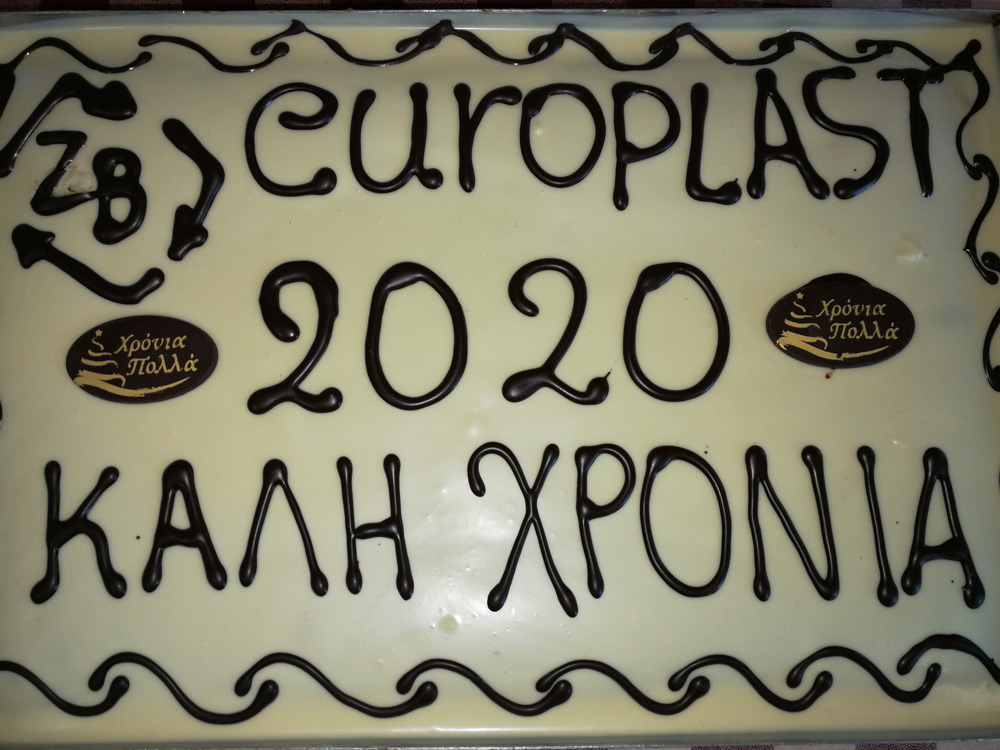 europLAST
ZB
2020
Χρόνια
Πολλά
Χρόνια
Πολλά
ΚΑΛΗ ΧΡΟΝΙΑ